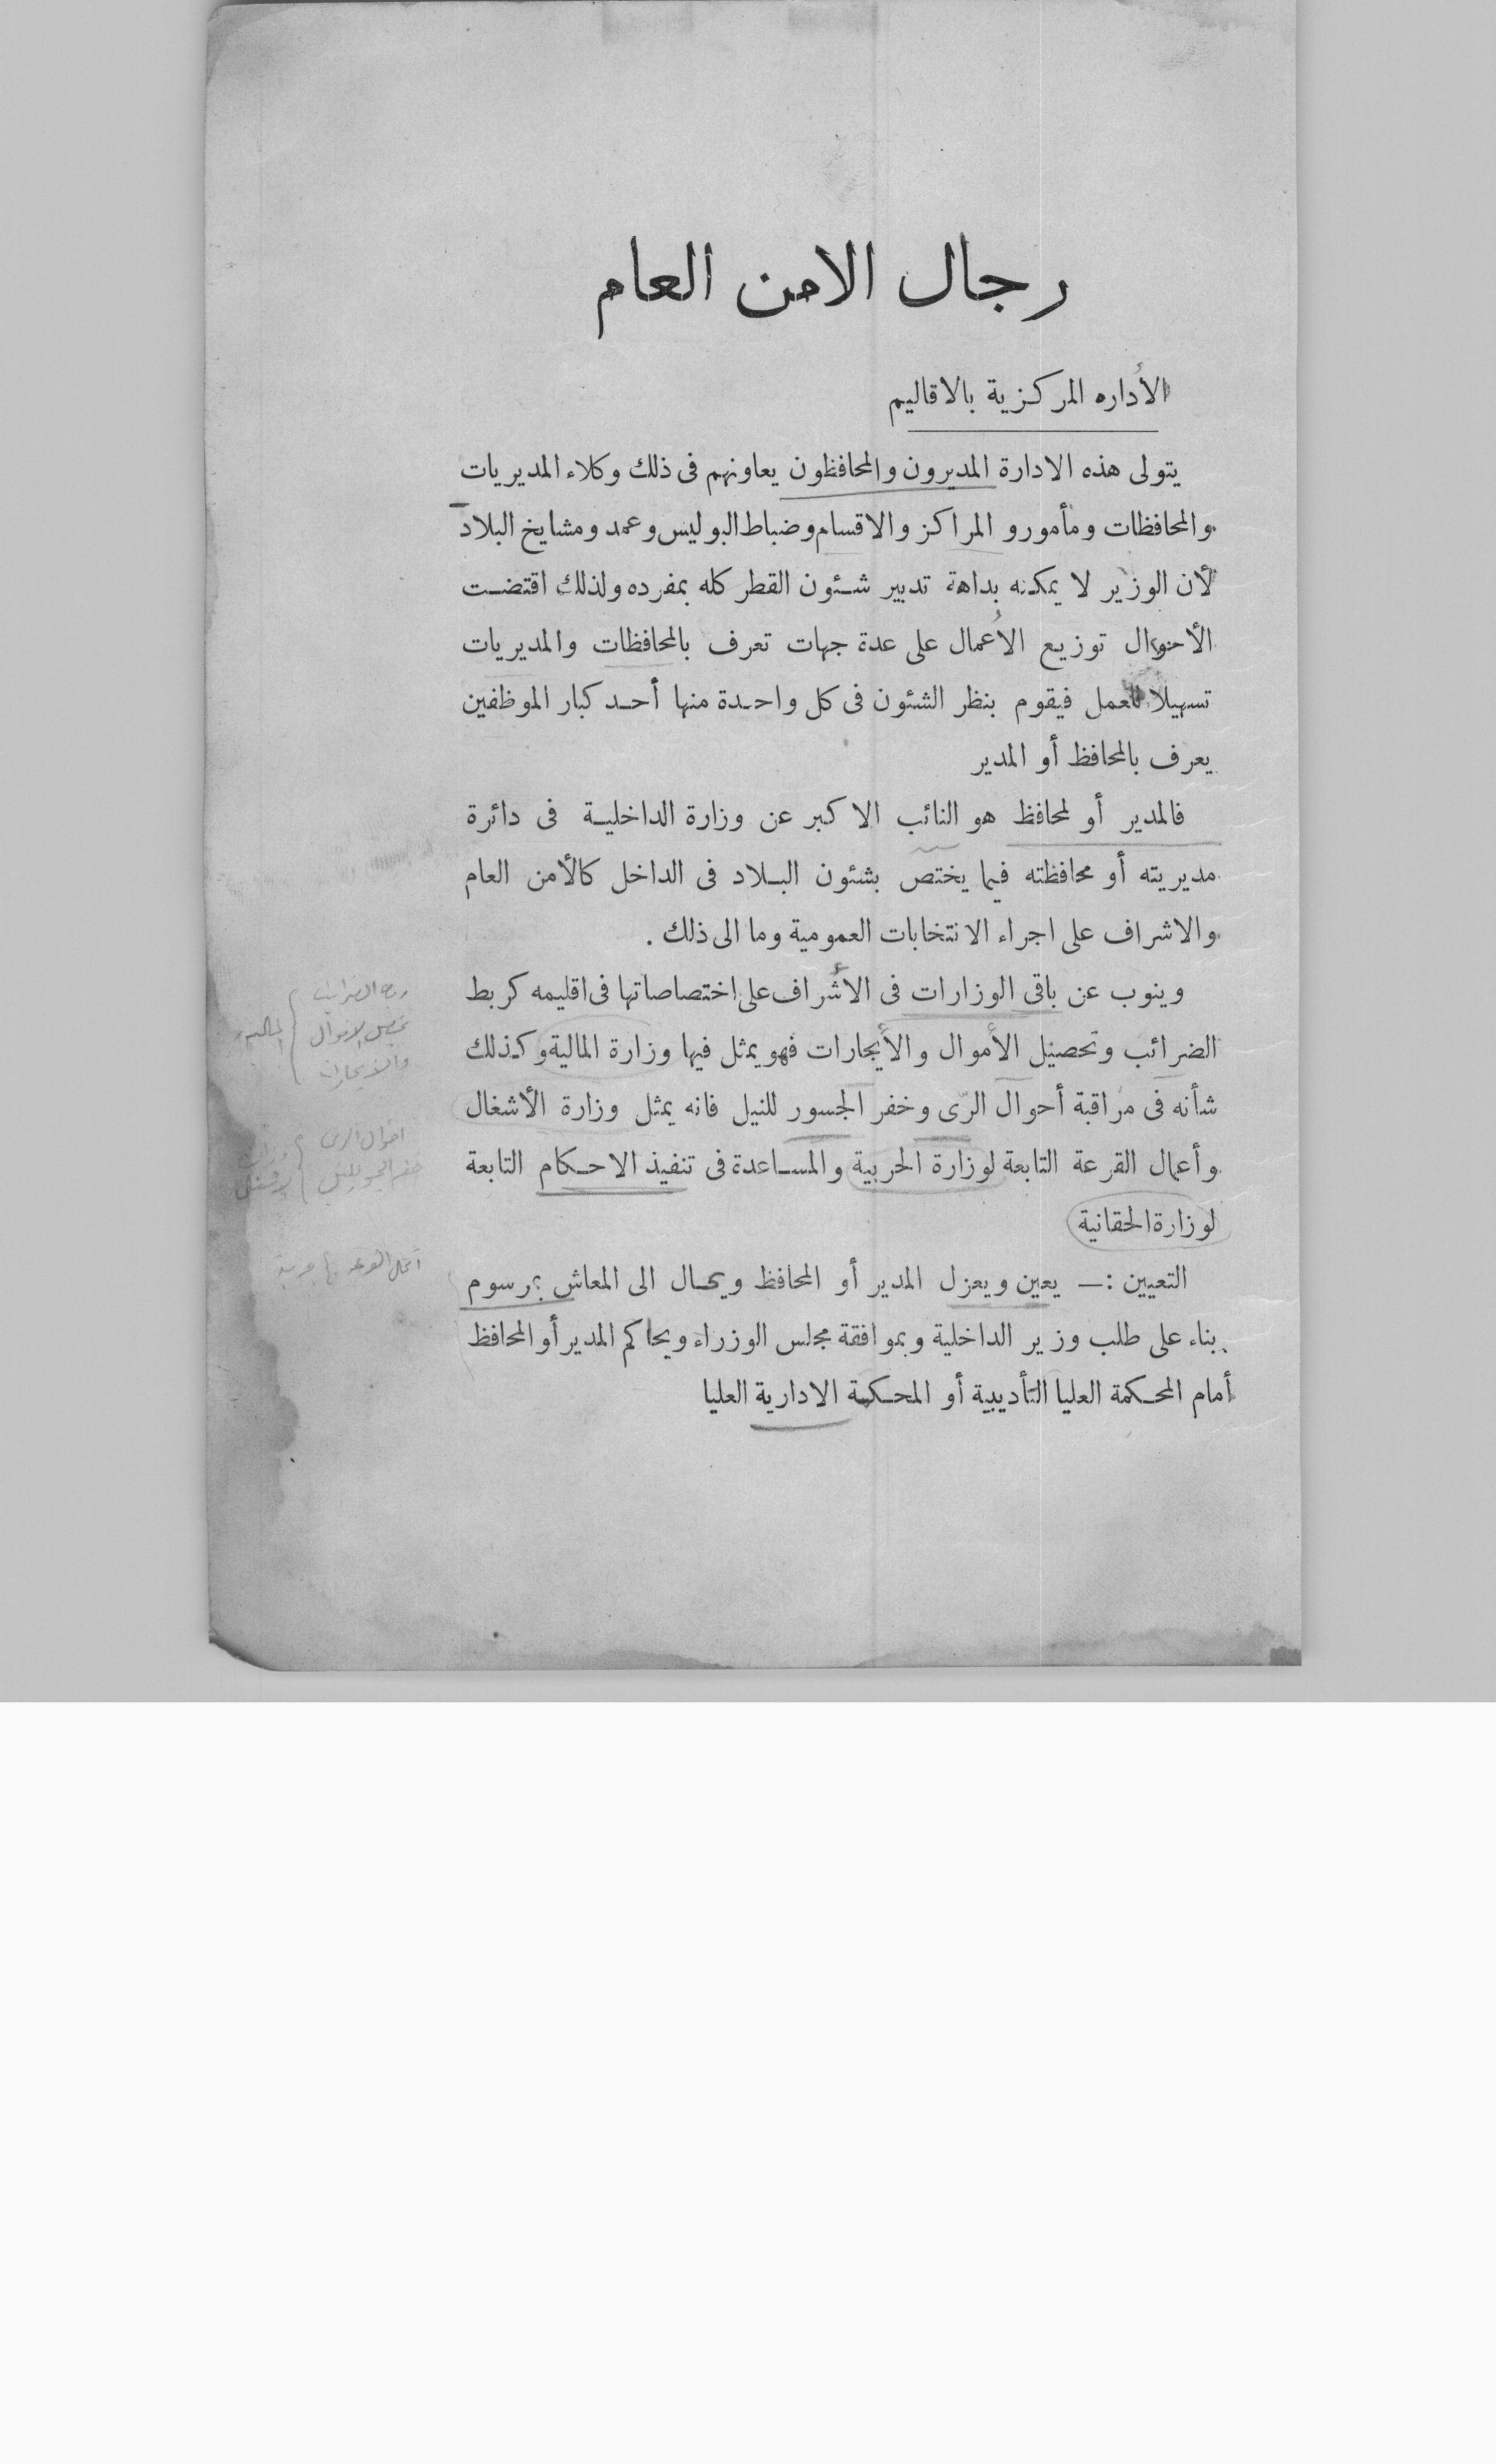 رجال الامن العام
الأداره المركزية بالاقاليم
يتولى هذه الادارة المديرون والمحافظون يعاونهم فى ذلك وكلاء المديريات
والمحافظات ومأمورو المراكز والاقسام وضباط البوليس وعمد ومشايخ البلاد
لأن الوزير لا يمكنه بداهة تدبير شئون القطر كله بمفرده ولذلك اقتضت
الأحوال توزيع الأعمال على عدة جهات تعرف بالمحافظات والمديريات
تسهيلا للعمل فيقوم بنظر الشئون فى كل واحدة منها أحد كبار الموظفين
يعرف بالمحافظ أو المدير
فالمدير أو لمحافظ هو النائب الاكبر عن وزارة الداخلية فى دائرة
مديريته أو محافظته فيما يختص بشئون البلاد فى الداخل كالأمن العام
والاشراف على اجراء الانتخابات العمومية وما الى ذلك .
وينوب عن باقى الوزارات فى الأشراف على اختصاصاتها فى اقليمه كربط
الضرائب وتحصيل الأموال والأيجارات فهو يمثل فيها وزارة المالية وكذلك
شأنه فى مراقبة أحوال الرّى وخفر الجسور للنيل فانه يمثل وزارة الأشغال
وأعمال القرعة التابعة لوزارة الحربية والمساعدة فى تنفيذ الاحكام التابعة
لوزارة الحقانية
التعيين :— يعين ويعزل المدير أو المحافظ ويحال الى المعاش بمرسوم
بناء على طلب وزير الداخلية وبموافقة مجلس الوزراء ويحاكم المدير أو المحافظ
أمام المحكمة العليا التأديبية أو المحكمة الادارية العليا
ربط الضرائب
تحصيل الاموال المالية
والايجارات
احوال الرى